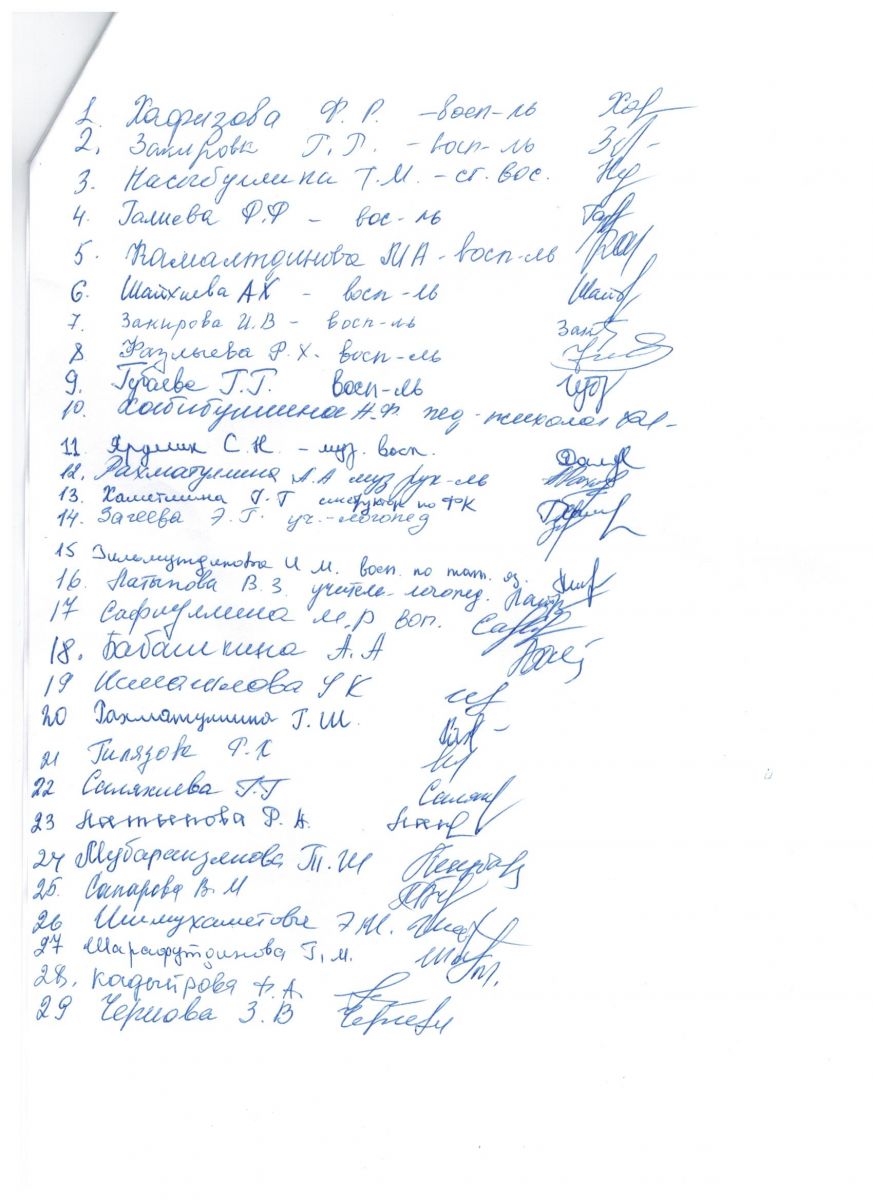 1. Хафизова Ф. Р. – восп-ль Хаф
2. Закирова Г. Г. – восп-ль
3. Насыбуллина Т.М. – ст. вос.
4. Галиева Ф.Ф – вос-ль
5. Камалтдинова М А - восп-ль
6. Шайхиева АХ - восп-ль
7. Закирова И.В – восп-ль
8 Фазлыева Р.Х. восп-ль
9. Губаева Г.Г. восп-ль
10. Хабибуллина А.Ф. пед-психолог
11. С. Н. – муз. восп.
12. Рахматуллина А.А муз рук-ль
13. Г.Г инструктор по ФК
14. Загеева Э.Г. уч.-логопед
15 И. М. восп. по тат. яз.
16. Латыпова В. З. учитель-логопед.
17 Сафиуллина М.Р воп.
18. Бабашкина А. А
19 Исмаилова К
20 Рахматуллина Г. Ш.
21 Гилязова
22 Саляхиева Г.Г
23 Латыпова Р. А.
24 Мубаракзянова Т. Ш
25. Сапарова В. М
26 Ишмухаметова Э.И.
27 Шарафутдинова Г. М.
28. Кадырова А.
29 Чернова З. В